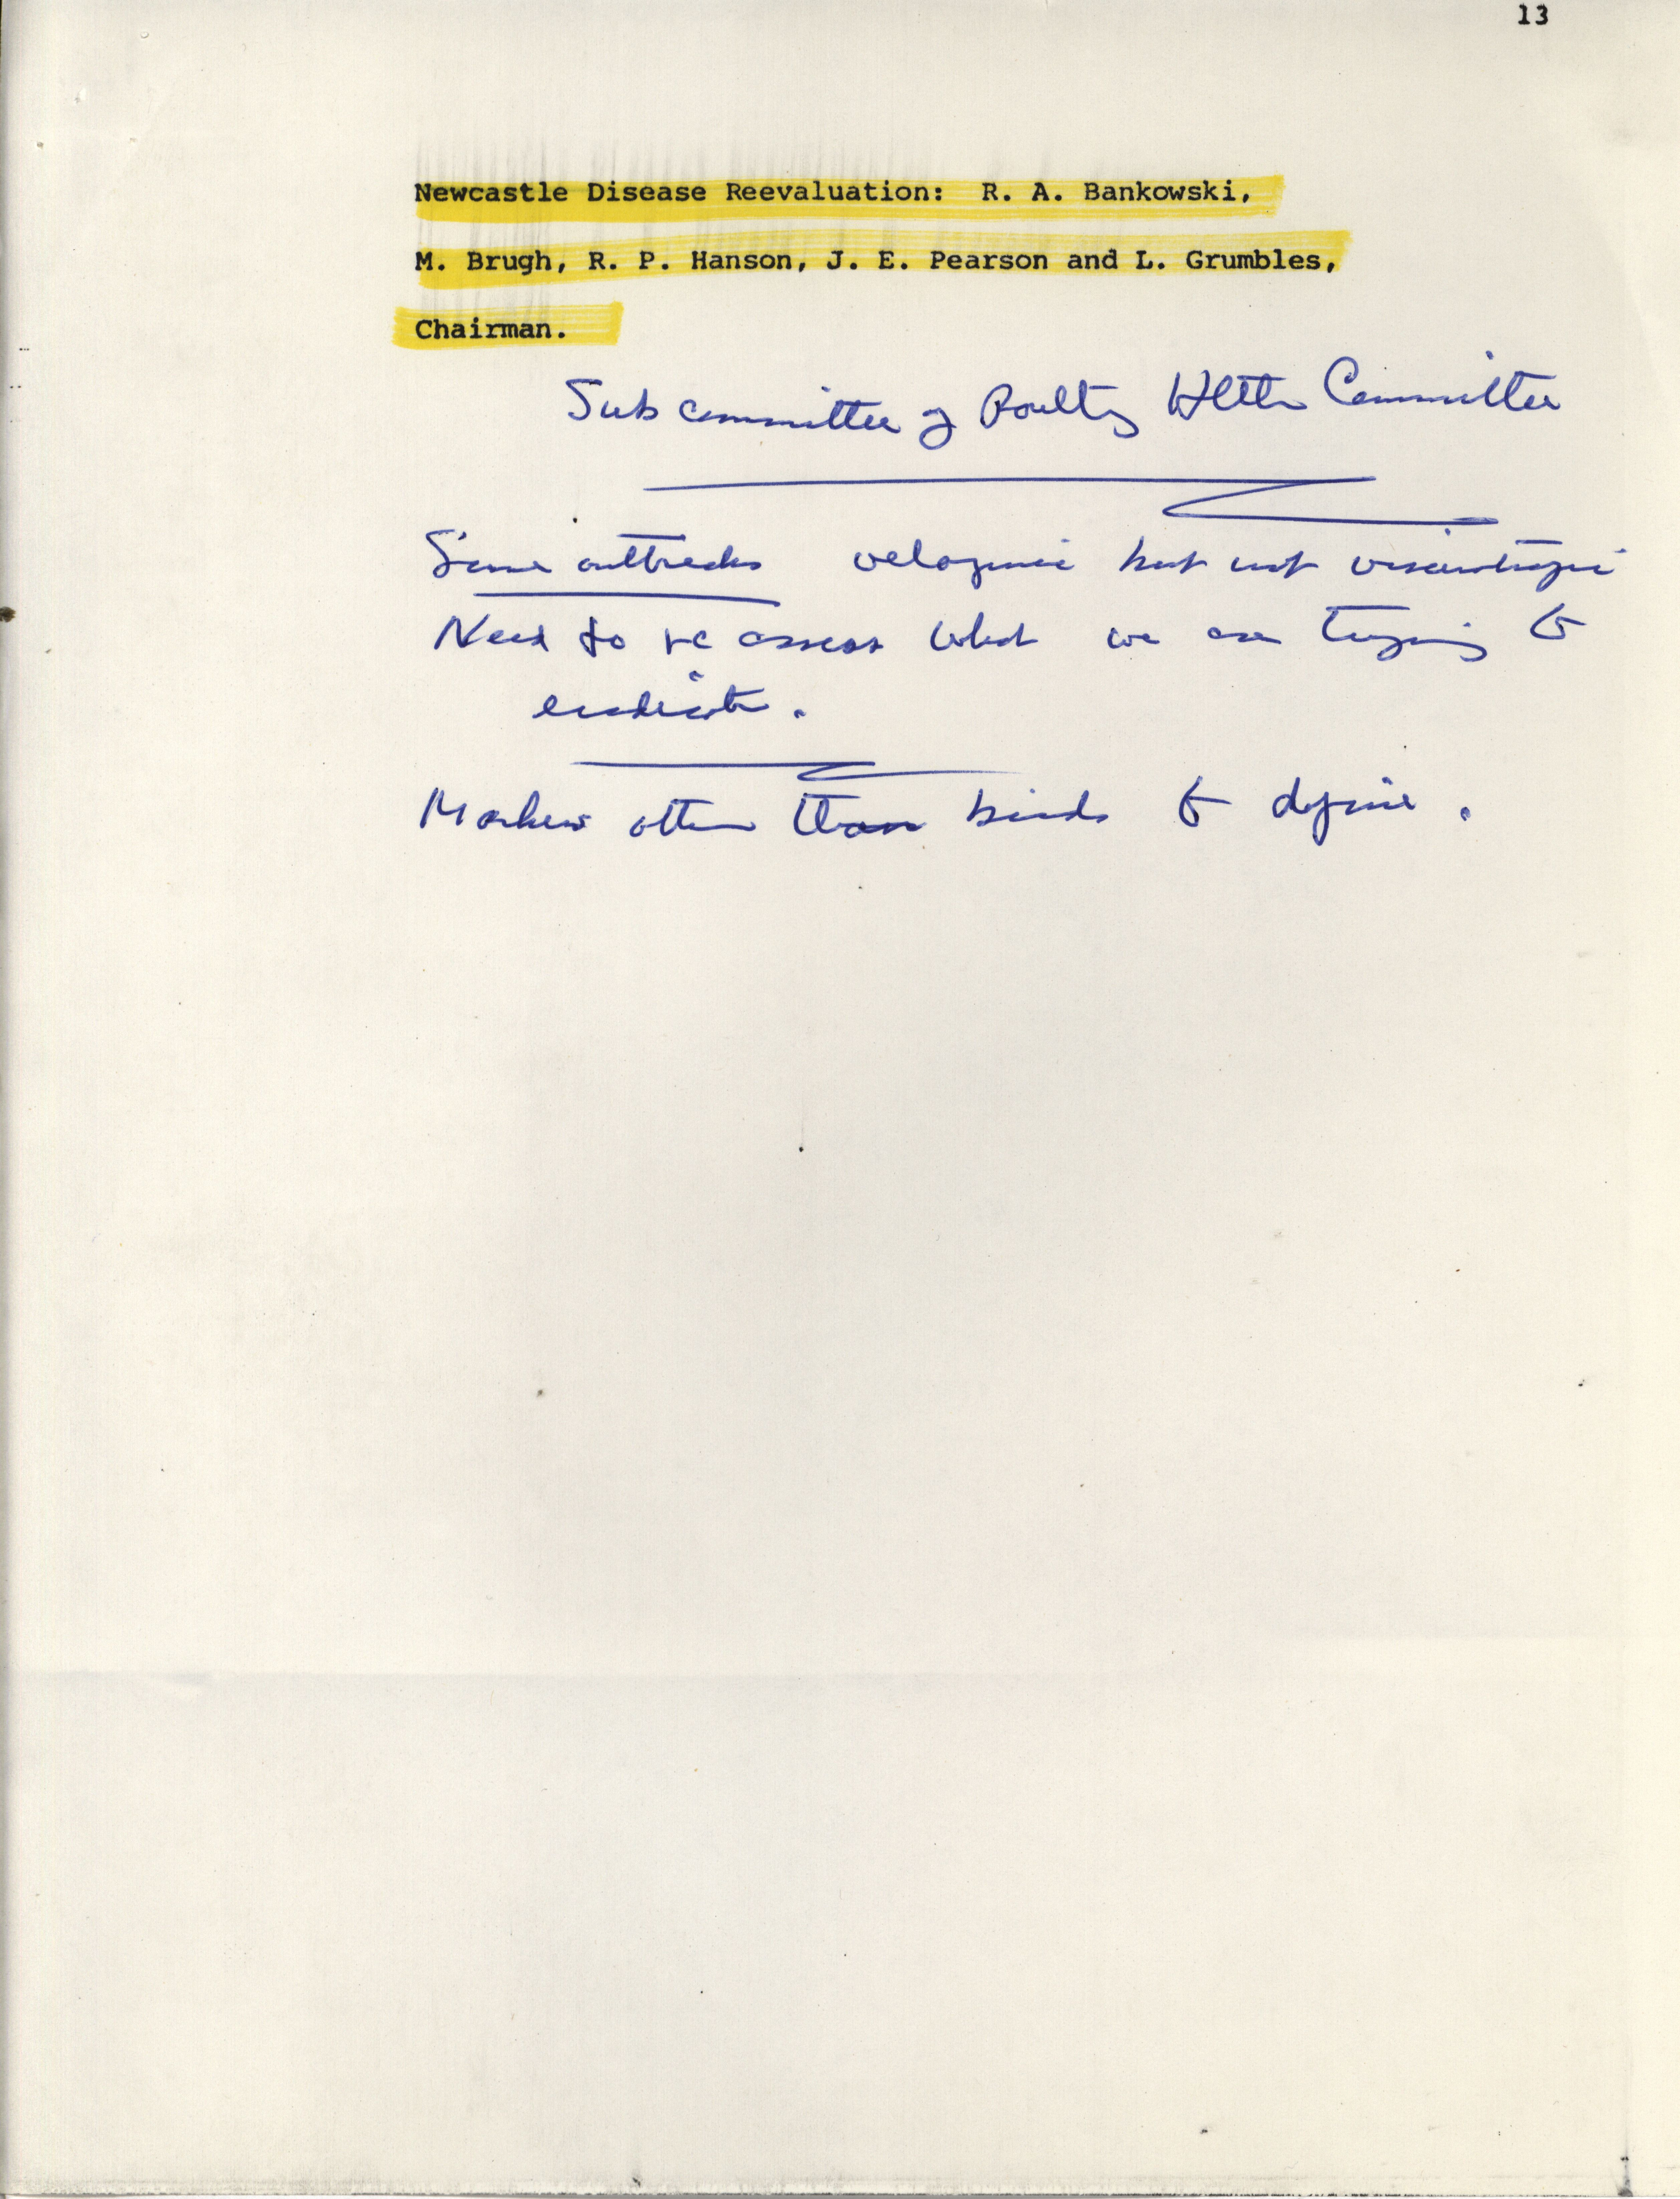 13
Newcastle Disease Reevaluation: R. A. Bankowski,
M. Brugh, R. P. Hanson, J. E. Pearson and L. Grumbles,
Chairman.
Subcommittee of Poultry Hlth Committee
Some outbreaks velogenic but not viscerotropic
Need to re assess what we are trying to
eradicate.
Markers other than birds to define.